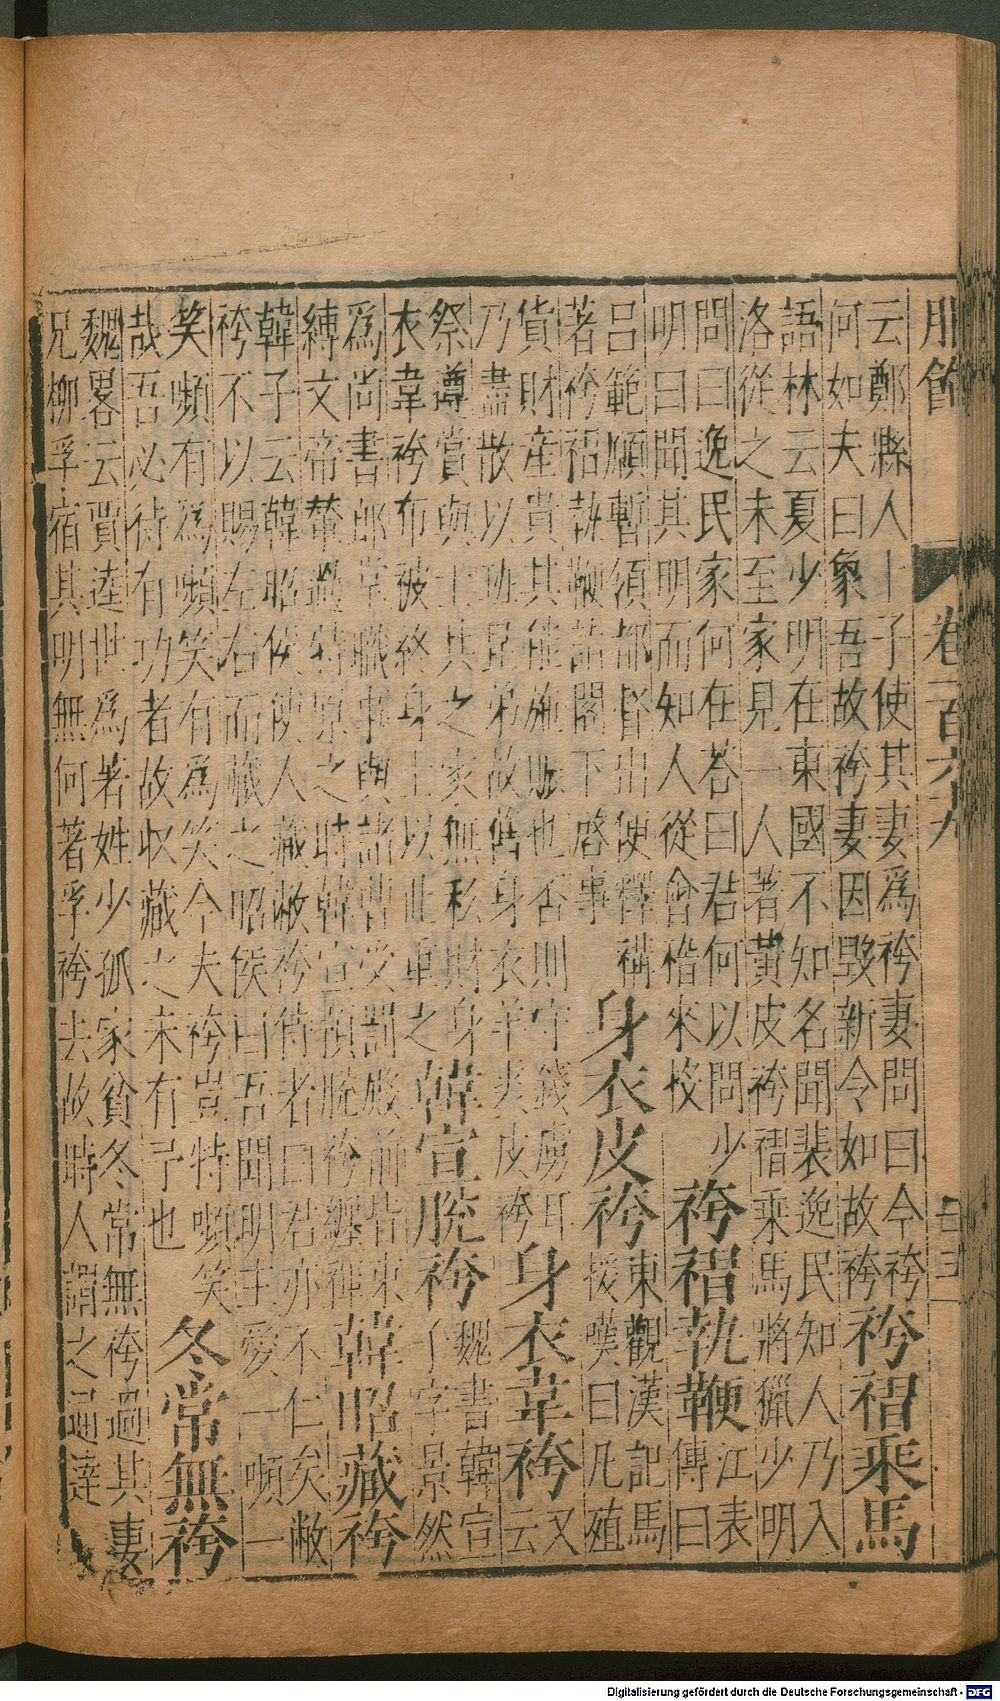 服飾
云鄭縣人卜子使其妻爲袴妻問曰今袴
何如夫曰象吾故袴妻因毀新令如故袴
袴褶乘馬
語林云夏少明在東國不知名聞裴逸民知人乃入
洛從之未至家見一人著黃皮袴褶乘馬將獵少明
問曰逸民家何在荅曰君何以問少
明曰聞其明而知人從會稽來投
袴褶執鞭
江表
傳曰
吕範願暫須都督出便釋褠
著袴褶執鞭詣閤下啓事
身衣皮袴
東觀漢記馬
援嘆曰凡殖
貨財産貴其能施賑也否則守錢虜耳
乃盡散以班昆弟故舊身衣羊裘皮袴
身衣韋袴
又
云
祭遵賞與士共之家無私財身
衣韋袴布被終身士以此重之
韓宣脱袴
魏書韓宣
子字景然
爲尚書郎常職事與諸曹受罰殿前皆束
縛文帝輦過特原之時韓宣損脱袴纏褌
韓昭藏袴
韓子云韓昭侯使人藏敝袴侍者曰君亦不仁矣敝
袴不以賜左右而藏之昭侯曰吾聞明主愛一嚬一
笑嚬有爲嚬笑有爲笑今夫袴豈特嚬笑
哉吾必待有功者故收藏之未有予也
冬常無袴
魏畧云賈逵世爲著姓少孤家貧冬常無袴過其妻
兄柳孚宿其明無何著孚袴去故時人謂之通達
卷
Digitalisierung gefördert durch die Deutsche Forschungsgemeinschaft - DFG